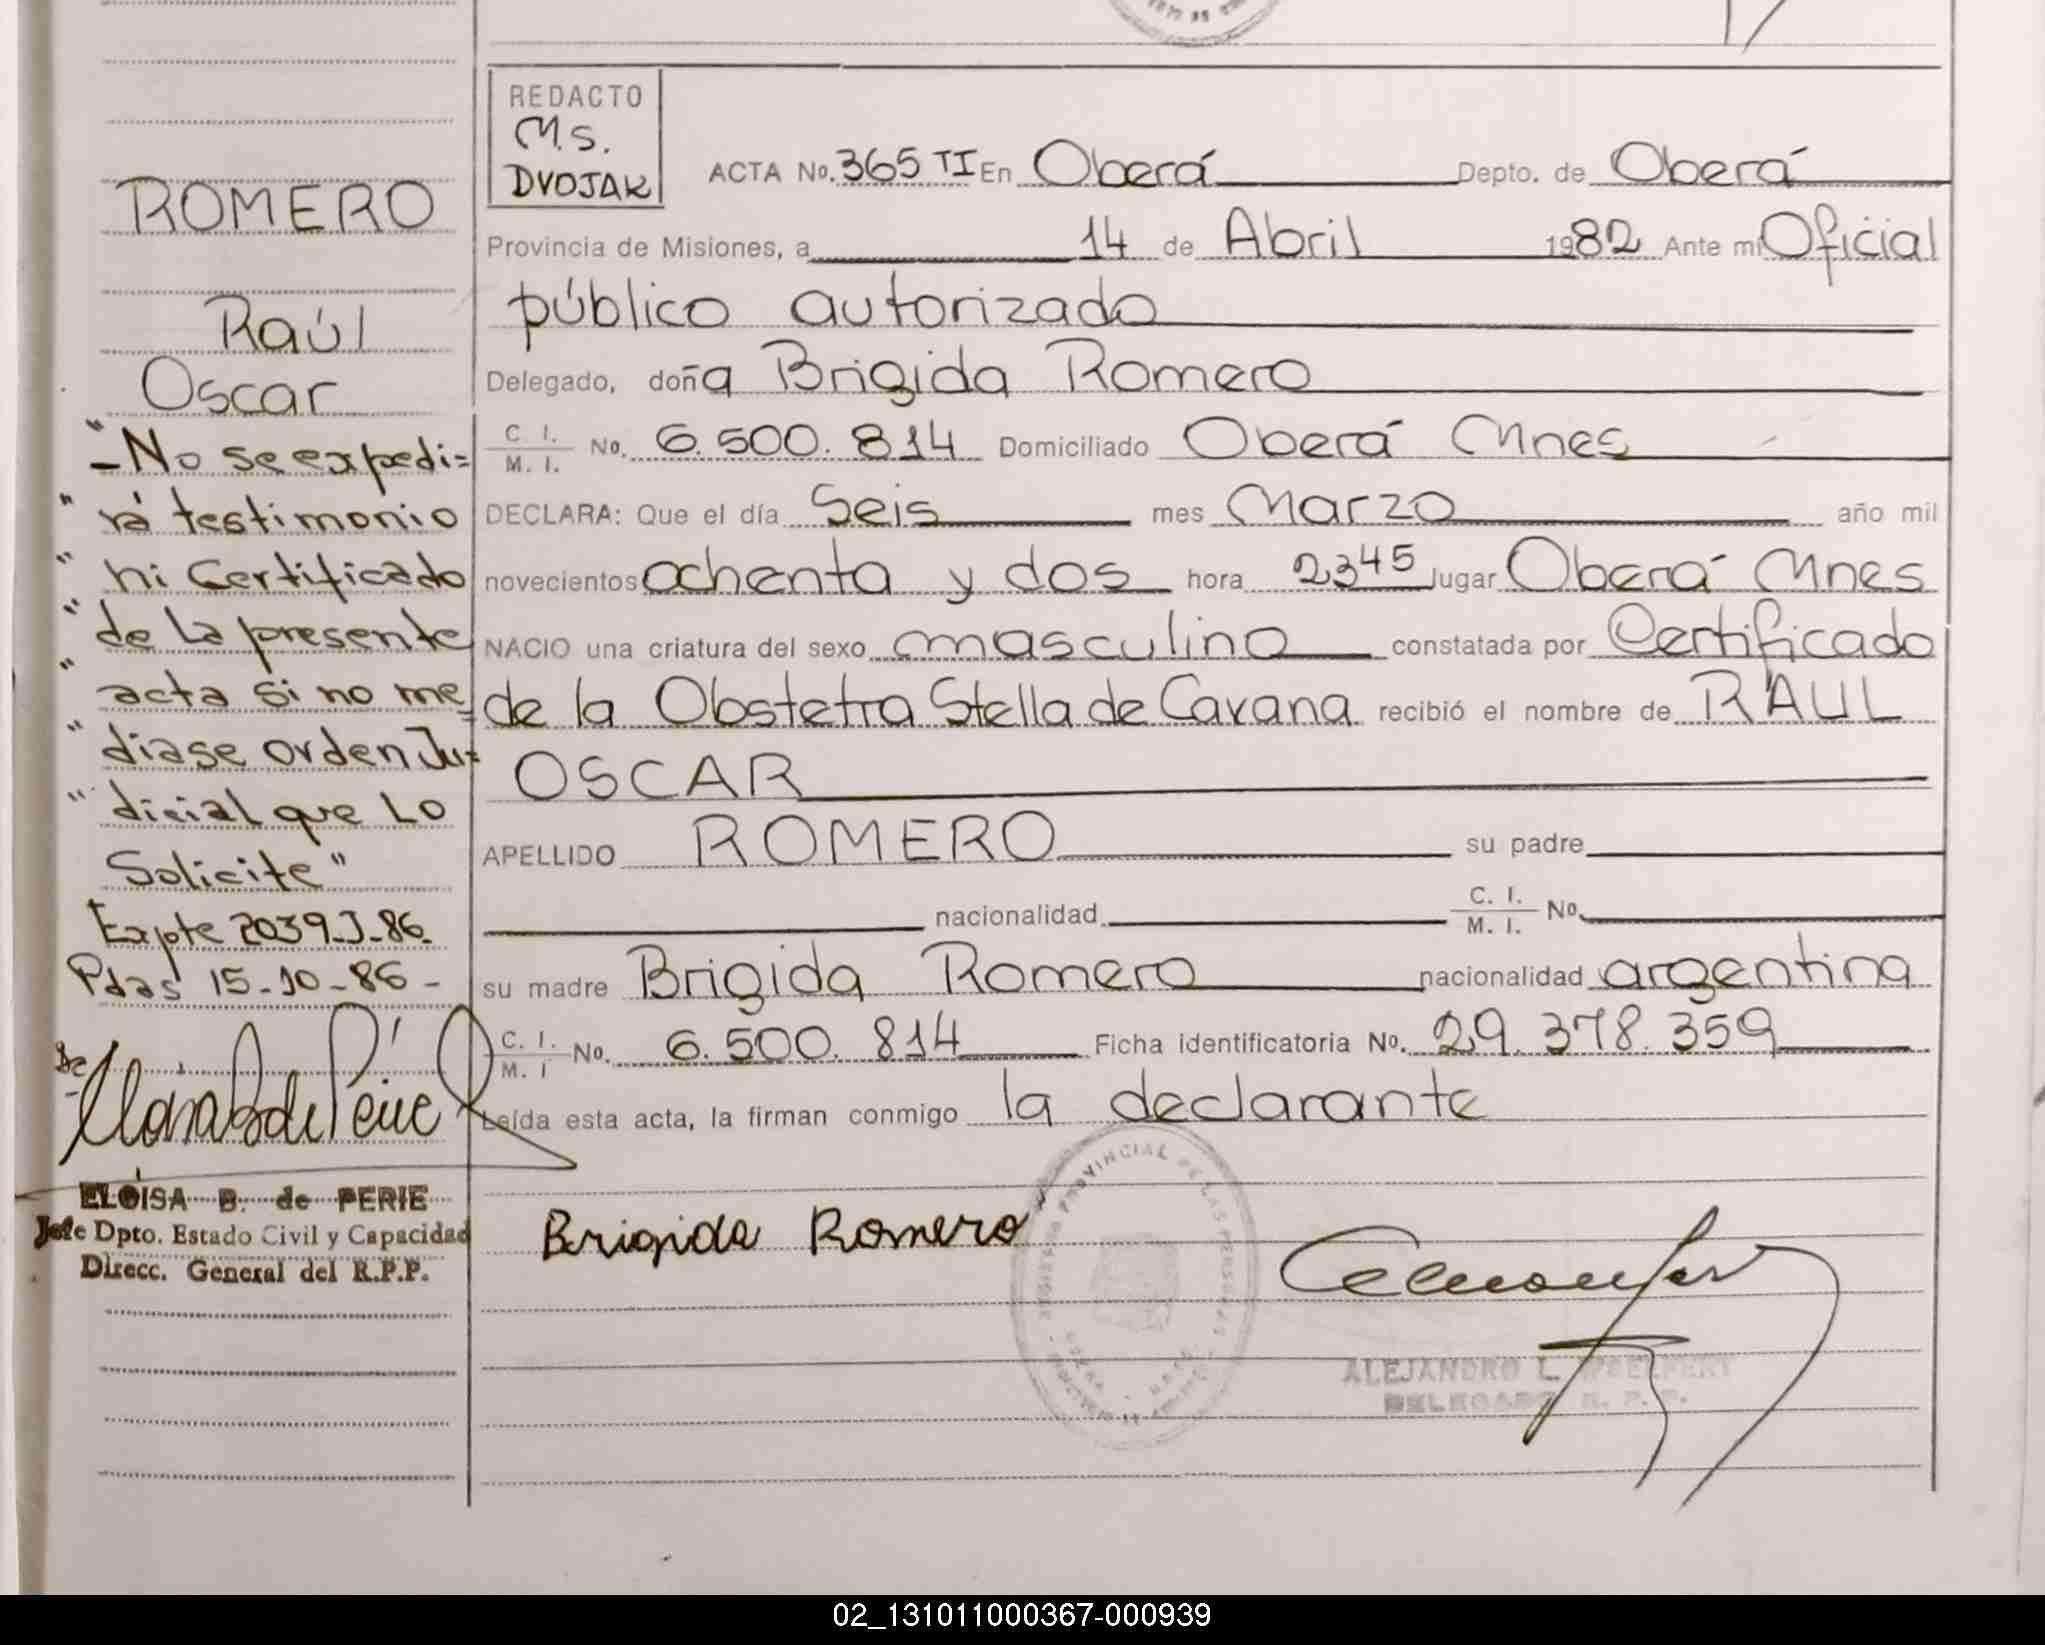 REDACTO
M.S.
DVOJAK
ACTA No. 365 TI En Oberá Depto. de Oberá
Provincia de Misiones, a 14 de Abril 1982 Ante mi Oficial
público autorizado
Delegado, doña Brigida Romero
C. I. / M. I. No. 6.500.814 Domiciliado Oberá Mnes
DECLARA: Que el día Seis mes Marzo año mil
novecientos ochenta y dos hora 2345 lugar Oberá Mnes
NACIO una criatura del sexo masculino constatada por Certificado
de la Obstetra Stella de Cavana recibió el nombre de RAUL
OSCAR
APELLIDO ROMERO su padre
nacionalidad C. I. / M. I. No.
su madre Brigida Romero nacionalidad argentina
C. I. / M. I No. 6.500.814 Ficha identificatoria No. 29.378.359
Leída esta acta, la firman conmigo la declarante
Brigida Romero
ALEJANDRO L.
DELEGADO R. P. P.
ROMERO
Raúl
Oscar
"-No se expedi=
" rá testimonio
" ni Certificado
" de la presente
" acta si no me=
" diase orden Ju=
" dicial que Lo
Solicite"
Expte 2039-J-86.
Pdas 15-10-86-
ELOISA B. de PERIE
Jefe Dpto. Estado Civil y Capacidad
Direcc. General del R.P.P.
02_131011000367-000939